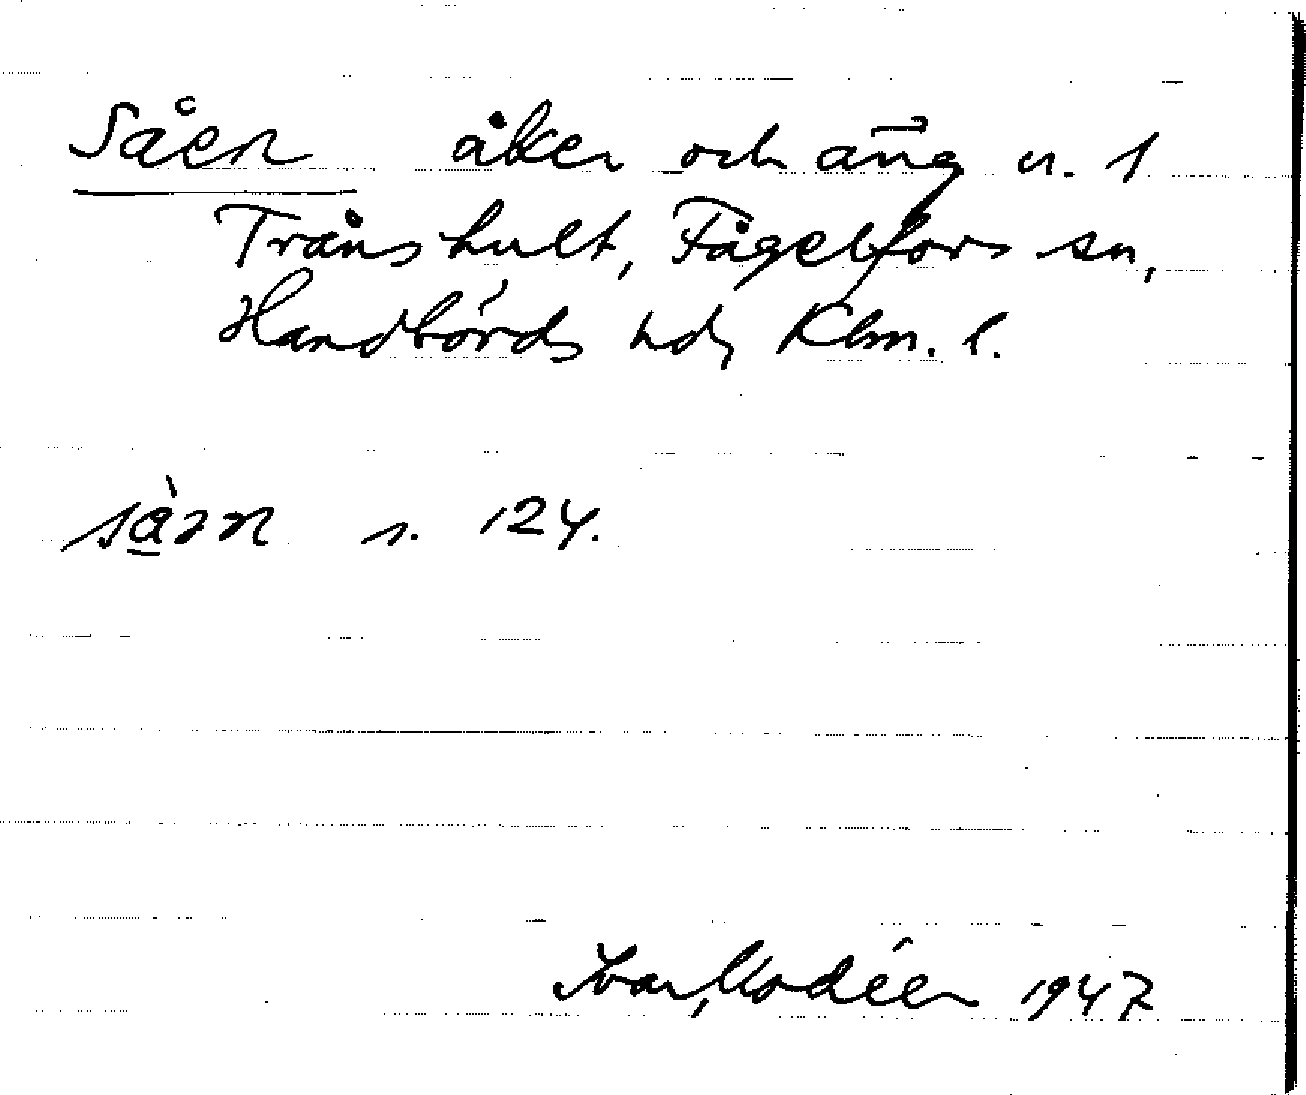 Såen åker och äng n. 1
Trånshult, Fågelfors sn,
Handbörds hd, Klm. l.
s. 124.
Ivar Modéer 1947